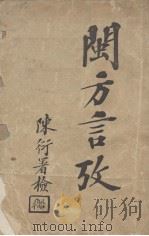 閩方言攷
陳衍署檢